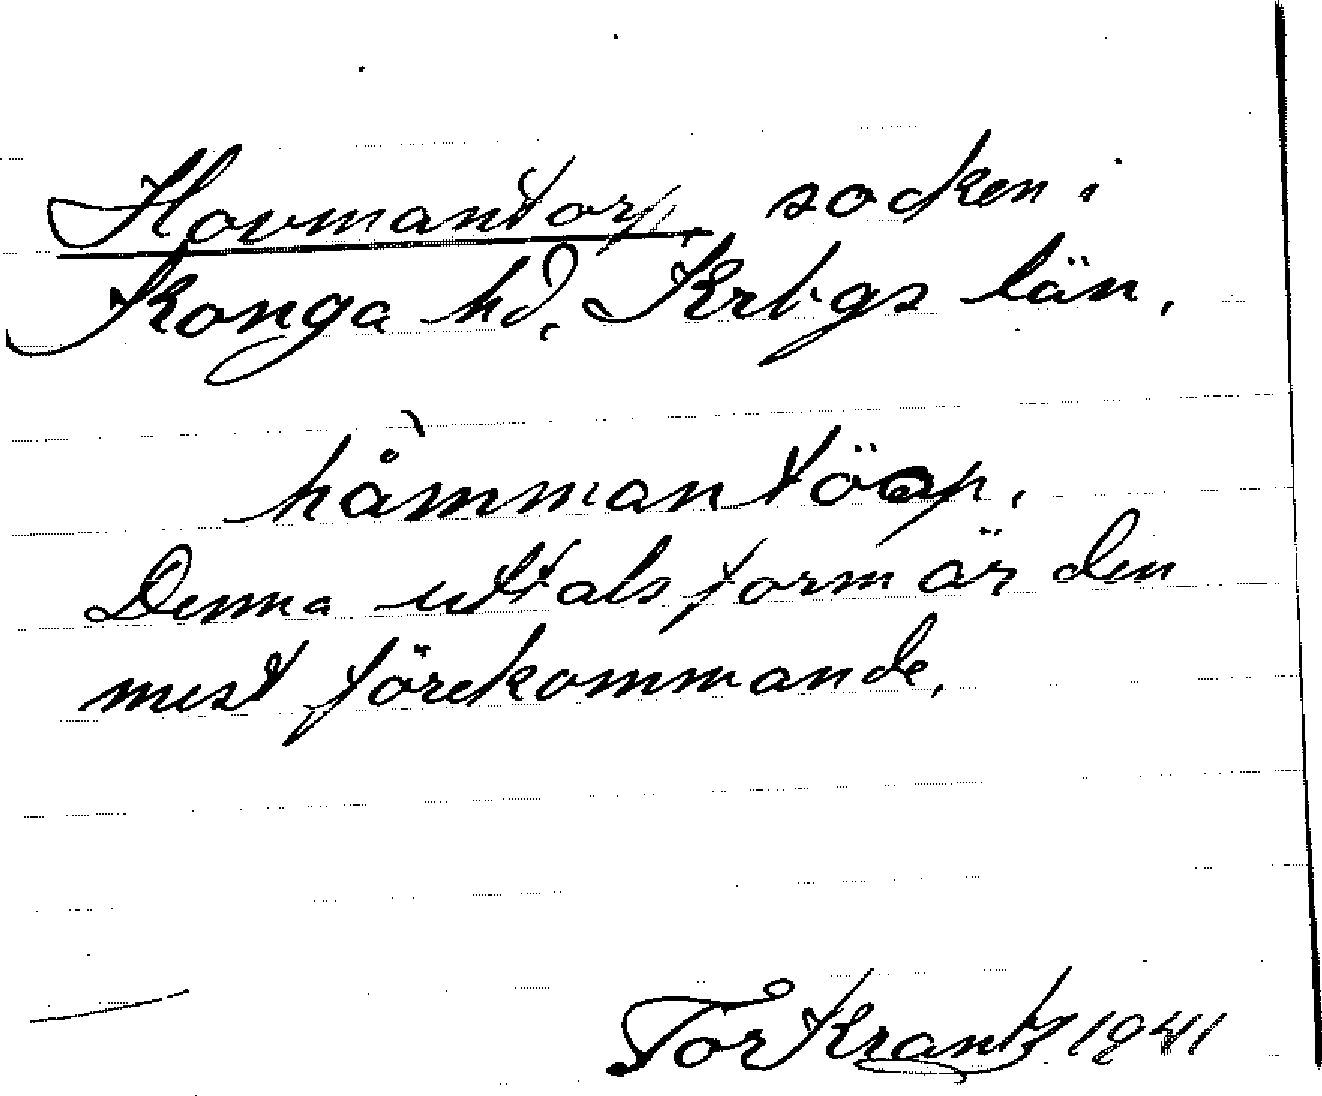 Hovmantorp, socken i
Konga hd, Krbgs län,
hå̀mmantöap,
Denna uttalsform är den
mest förekommande,
Tor Krantz 1941